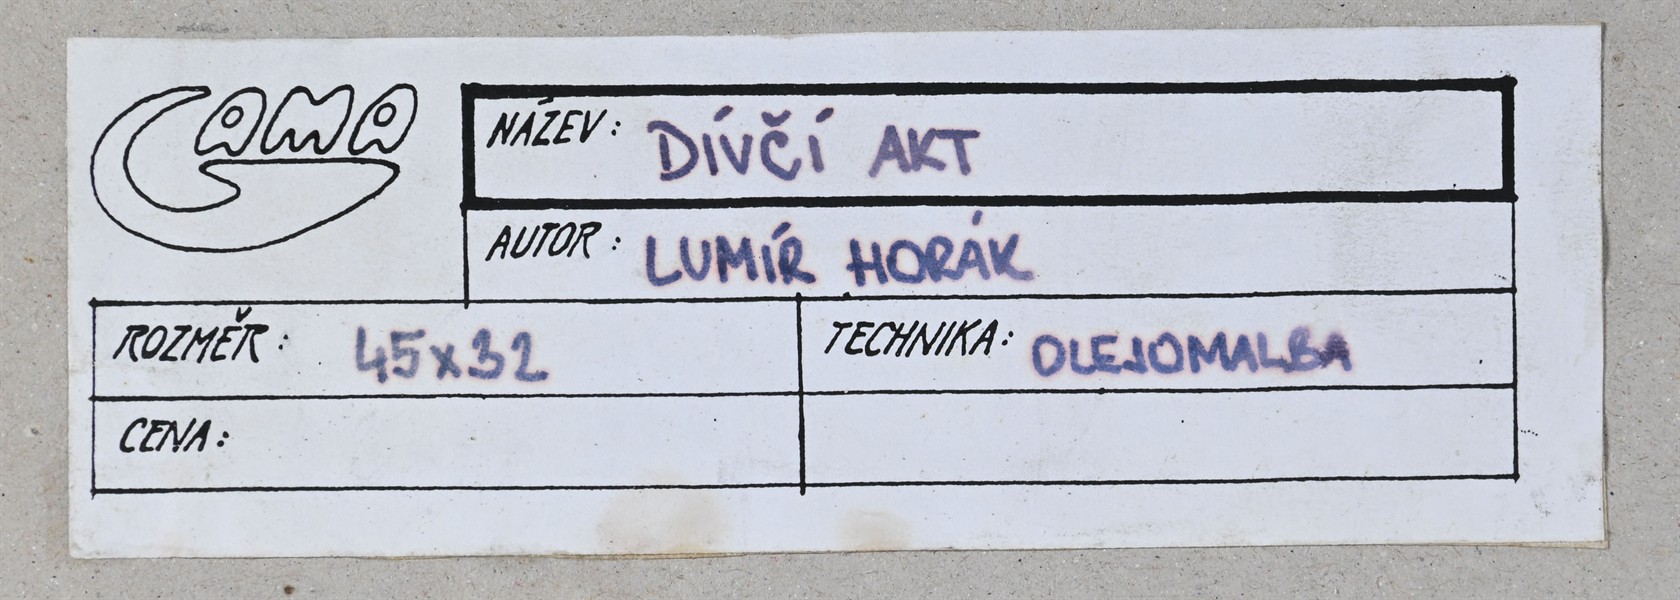 GAMA
NÁZEV: DÍVČÍ AKT
AUTOR: LUMÍR HORÁK
ROZMĚR: 45x32
TECHNIKA: OLEJOMALBA
CENA: